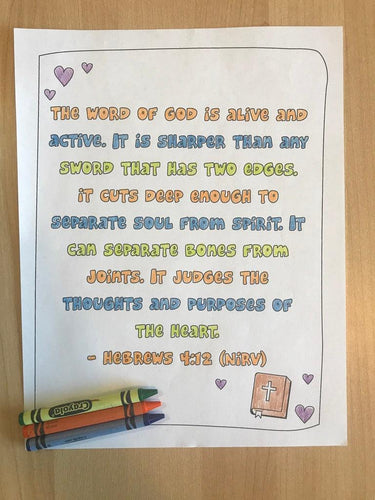 THE WORD OF GOD IS ALIVE AND
ACTIVE. IT IS SHARPER THAN ANY
SWORD THAT HAS TWO EDGES.
IT CUTS DEEP ENOUGH TO
SEPARATE SOUL FROM SPIRIT. IT
CAN SEPARATE BONES FROM
JOINTS. IT JUDGES THE
THOUGHTS AND PURPOSES OF
THE HEART.
- HEBREWS 4:12 (NIRV)
Crayola